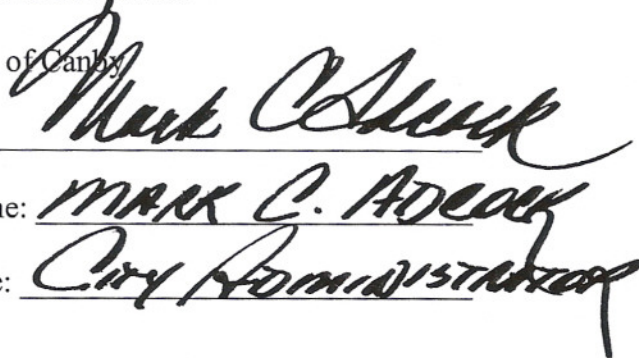 of Canby
Mark C Adcock
me: MARK C. ADCOCK
e: CITY ADMINISTRATOR